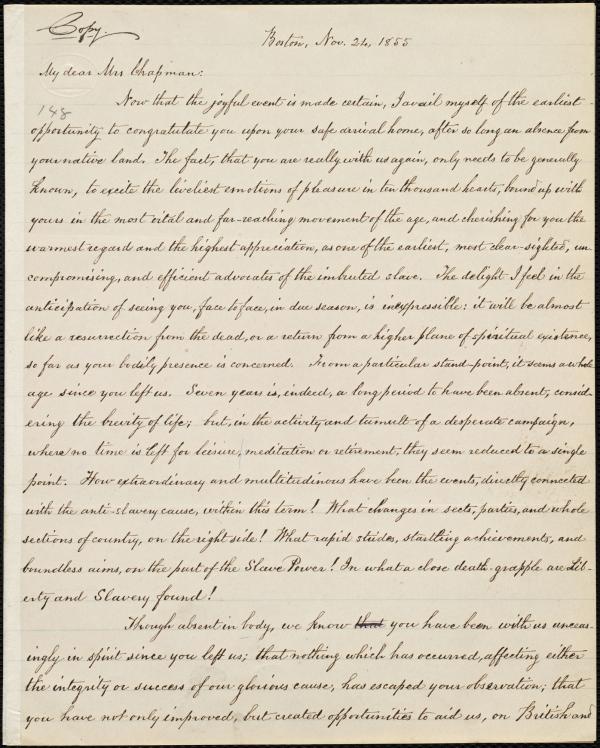 Copy.
Boston, Nov. 24, 1855
My dear Mrs Chapman:
148
Now that the joyful event is made certain, I avail myself of the earliest
opportunity to congratulate you upon your safe arrival home, after so long an absence from
your native land. The fact, that you are really with us again, only needs to be generally
known, to excite the liveliest emotions of pleasure in ten thousand hearts, bound up with
yours in the most vital and far-reaching movement of the age, and cherishing for you the
warmest regard and the highest appreciation, as one of the earliest, most clear-sighted, un-
compromising, and efficient advocates of the imbruted slave. The delight I feel in the
anticipation of seeing you, face to face, in due season, is inexpressible: it will be almost
like a resurrection from the dead, or a return from a higher plane of spiritual existence,
so far as your bodily presence is concerned. From a particular stand-point, it seems a whole
age since you left us. Seven years is, indeed, a long period to have been absent, consid-
ering the brevity of life; but, in the activity and tumult of a desperate campaign,
where no time is left for leisure, meditation or retirement, they seem reduced to a single
point. How extraordinary and multitudinous have been the events, directly connected
with the anti-slavery cause, within this term! What changes in sects, parties, and whole
sections of country, on the right side! What rapid strides, startling achievements, and
boundless aims, on the part of the Slave Power! In what a close death-grapple are Lib-
erty and Slavery found!
Though absent in body, we know that you have been with us unceas-
ingly in spirit since you left us; that nothing which has occurred, affecting either
the integrity or success of our glorious cause, has escaped your observation; that
you have not only improved, but created opportunities to aid us, on British and